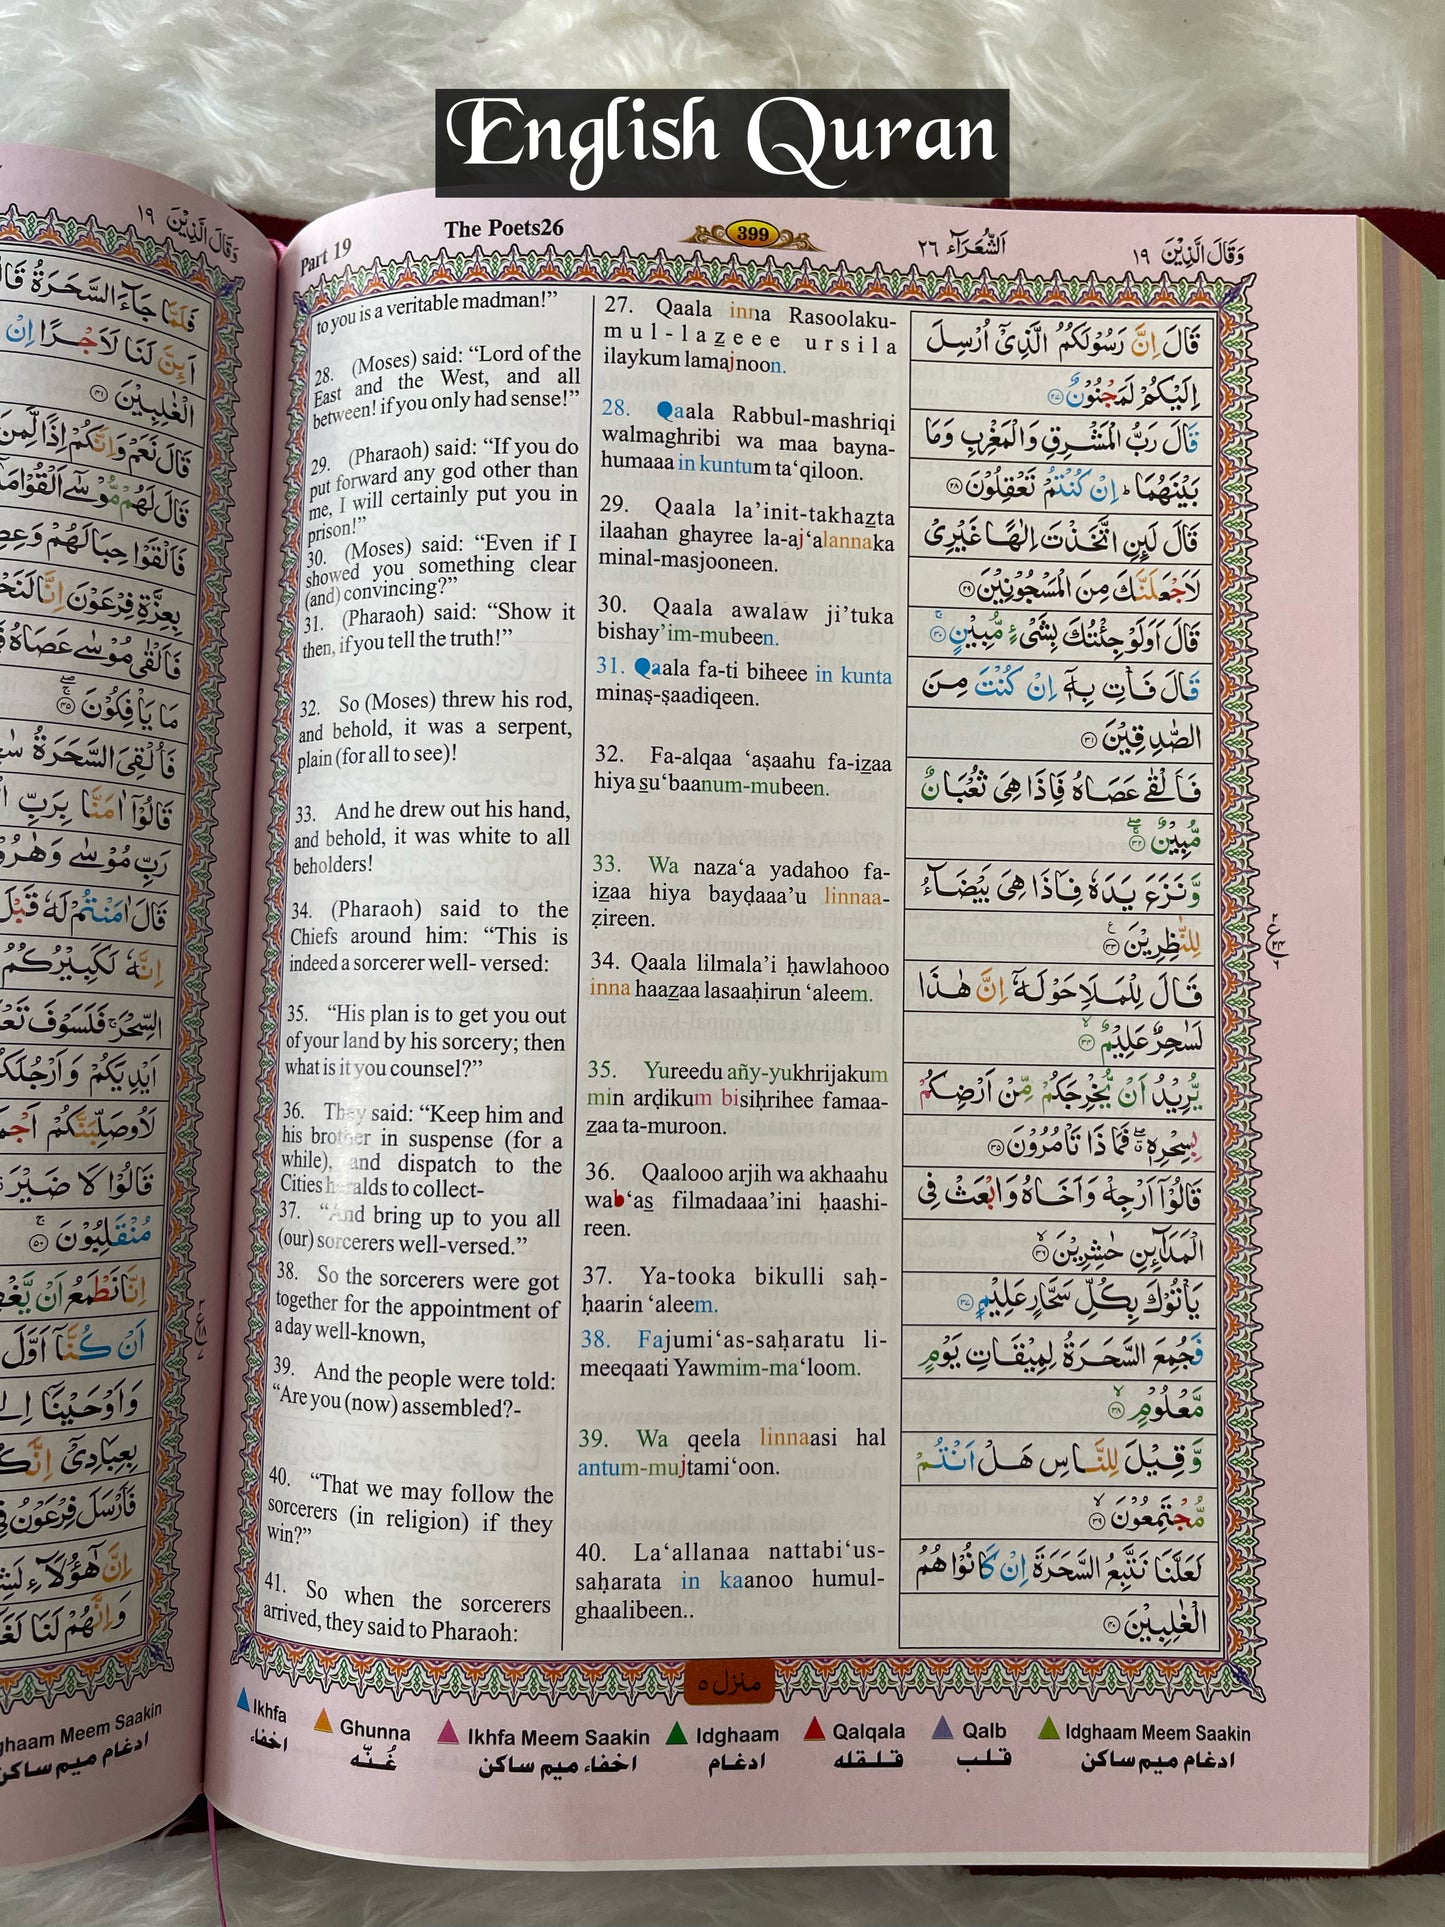 English Quran
Part 19
The Poets26
399
اَلشُّعَرَآء ٢٦
وَقَالَ الَّذِيْنَ ١٩
to you is a veritable madman!”
28. (Moses) said: “Lord of the
East and the West, and all
between! if you only had sense!”
29. (Pharaoh) said: “If you do
put forward any god other than
me, I will certainly put you in
prison!”
30. (Moses) said: “Even if I
showed you something clear
(and) convincing?”
31. (Pharaoh) said: “Show it
then, if you tell the truth!”
32. So (Moses) threw his rod,
and behold, it was a serpent,
plain (for all to see)!
33. And he drew out his hand,
and behold, it was white to all
beholders!
34. (Pharaoh) said to the
Chiefs around him: “This is
indeed a sorcerer well- versed:
35. “His plan is to get you out
of your land by his sorcery; then
what is it you counsel?”
36. They said: “Keep him and
his brother in suspense (for a
while), and dispatch to the
Cities heralds to collect-
37. “And bring up to you all
(our) sorcerers well-versed.”
38. So the sorcerers were got
together for the appointment of
a day well-known,
39. And the people were told:
“Are you (now) assembled?-
40. “That we may follow the
sorcerers (in religion) if they
win?”
41. So when the sorcerers
arrived, they said to Pharaoh:
27. Qaala inna Rasoolaku-
mul-lazeee ursila
ilaykum lamajnoon.
28. Qaala Rabbul-mashriqi
walmaghribi wa maa bayna-
humaaa in kuntum ta‘qiloon.
29. Qaala la’init-takhazta
ilaahan ghayree la-aj‘alannaka
minal-masjooneen.
30. Qaala awalaw ji’tuka
bishay’im-mubeen.
31. Qaala fa-ti biheee in kunta
minaṣ-ṣaadiqeen.
32. Fa-alqaa ‘aṣaahu fa-izaa
hiya su‘baanum-mubeen.
33. Wa naza‘a yadahoo fa-
izaa hiya bayḍaaa’u linnaa-
ẓireen.
34. Qaala lilmala’i ḥawlahooo
inna haazaa lasaaḥirun ‘aleem.
35. Yureedu añy-yukhrijakum
min arḍikum bisiḥrihee famaa-
zaa ta-muroon.
36. Qaalooo arjih wa akhaahu
wab‘as filmadaaa’ini ḥaashi-
reen.
37. Ya-tooka bikulli saḥ-
ḥaarin ‘aleem.
38. Fajumi‘as-saḥaratu li-
meeqaati Yawmim-ma‘loom.
39. Wa qeela linnaasi hal
antum-mujtami‘oon.
40. La‘allanaa nattabi‘us-
saḥarata in kaanoo humul-
ghaalibeen..
قَالَ اِنَّ رَسُوْلَكُمُ الَّذِىْۤ اُرْسِلَ
اِلَيْكُمْ لَمَجْنُوْنٌ ٢٧
قَالَ رَبُّ الْمَشْرِقِ وَالْمَغْرِبِ وَمَا
بَيْنَهُمَا ؕ اِنْ كُنْتُمْ تَعْقِلُوْنَ ٢٨
قَالَ لَئِنِ اتَّخَذْتَ اِلٰهًا غَيْرِىْ
لَاَجْعَلَنَّكَ مِنَ الْمَسْجُوْنِيْنَ ٢٩
قَالَ اَوَلَوْ جِئْتُكَ بِشَىْءٍ مُّبِيْنٍ ۚ ٣٠
قَالَ فَاْتِ بِهٖۤ اِنْ كُنْتَ مِنَ
الصّٰدِقِيْنَ ٣١
فَاَلْقٰى عَصَاهُ فَاِذَا هِىَ ثُعْبَانٌ
مُّبِيْنٌ ۖۚ ٣٢
وَّنَزَعَ يَدَهٗ فَاِذَا هِىَ بَيْضَآءُ
لِلنّٰظِرِيْنَ ٣٣
قَالَ لِلْمَلَاِ حَوْلَهٗۤ اِنَّ هٰذَا
لَسٰحِرٌ عَلِيْمٌ ۙ ٣٤
يُّرِيْدُ اَنْ يُّخْرِجَكُمْ مِّنْ اَرْضِكُمْ
بِسِحْرِهٖ ۖۗ فَمَا ذَا تَاْمُرُوْنَ ٣٥
قَالُوْۤا اَرْجِهْ وَاَخَاهُ وَابْعَثْ فِى
الْمَدَآئِنِ حٰشِرِيْنَ ۙ ٣٦
يَاْتُوْكَ بِكُلِّ سَحَّارٍ عَلِيْمٍ ٣٧
فَجُمِعَ السَّحَرَةُ لِمِيْقَاتِ يَوْمٍ
مَّعْلُوْمٍ ۙ ٣٨
وَّقِيْلَ لِلنَّاسِ هَلْ اَنْتُمْ
مُّجْتَمِعُوْنَ ۙ ٣٩
لَعَلَّنَا نَتَّبِعُ السَّحَرَةَ اِنْ كَانُوْا هُمُ
الْغٰلِبِيْنَ ٤٠
منزل ٥
Ikhfa
Ghunna
Ikhfa Meem Saakin
Idghaam
Qalqala
Qalb
Idghaam Meem Saakin
اخفاء
غُنّه
اخفاء ميم ساكن
ادغام
قلقله
قلب
ادغام ميم ساكن
وَقَالَ الَّذِيْنَ ١٩
فَلَمَّا جَآءَ السَّحَرَةُ
اَئِنَّ لَنَا لَاَجْرًا اِنْ
الْغٰلِبِيْنَ ٤١
قَالَ نَعَمْ وَاِنَّكُمْ اِذًا لَّمِنَ
قَالَ لَهُمْ مُّوْسٰۤى اَلْقُوْا
فَاَلْقَوْا حِبَالَهُمْ
بِعِزَّةِ فِرْعَوْنَ اِنَّا
فَاَلْقٰى مُوْسٰى عَصَاهُ
مَا يَاْفِكُوْنَ ۖۚ ٤٥
فَاُلْقِىَ السَّحَرَةُ
قَالُوْۤا اٰمَنَّا بِرَبِّ
رَبِّ مُوْسٰى
قَالَ اٰمَنْتُمْ لَهٗ قَبْلَ
اِنَّهٗ لَكَبِيْرُكُمُ
السِّحْرَ ۚ فَلَسَوْفَ
اَيْدِيَكُمْ
وَّلَاُوصَلِّبَنَّكُمْ
قَالُوْا لَا ضَيْرَ
مُنْقَلِبُوْنَ ۚ ٥٠
اِنَّا نَطْمَعُ اَنْ
اَنْ كُنَّاۤ اَوَّلَ
وَاَوْحَيْنَاۤ
بِعِبَادِىْۤ
فَاَرْسَلَ فِرْعَوْنُ
اِنَّ هٰۤؤُلَآءِ
وَاِنَّهُمْ لَنَا
Meem Saakin
ادغام ميم ساكن